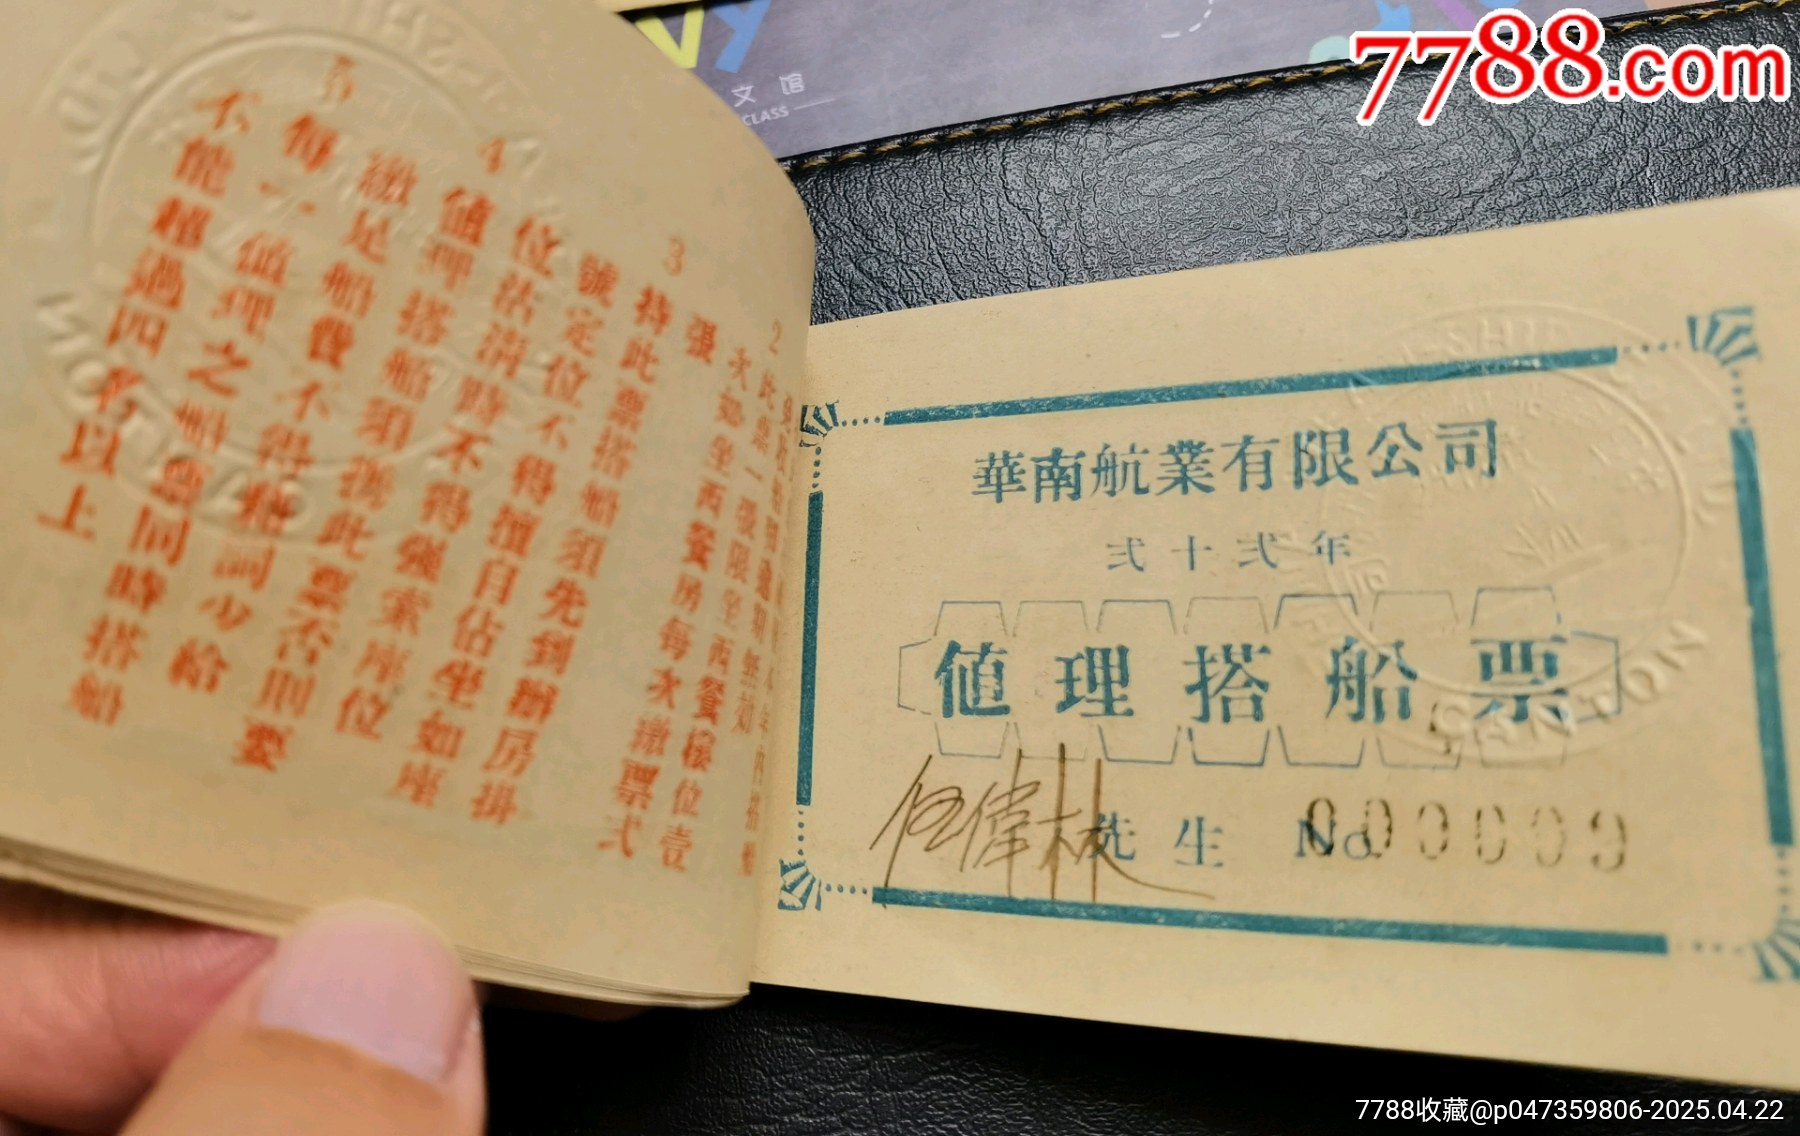 7788.com
文馆
CLASS
華南航業有限公司
弍十弍年
値理搭船票
伍偉林先生 No 000009
CANTON
2 此票一張限坐西餐樓位壹
次如坐西餐房每次繳票弍
張
3 持此票搭船須先到辦房掛
號定位不得擅自佔坐如座
位沽清時不得強索座位
4 値理搭船須携此票否則要
繳足船費不得執詞少給
5 每一値理之船票同時搭船
不能越過四名以上
7788收藏@p047359806-2025.04.22